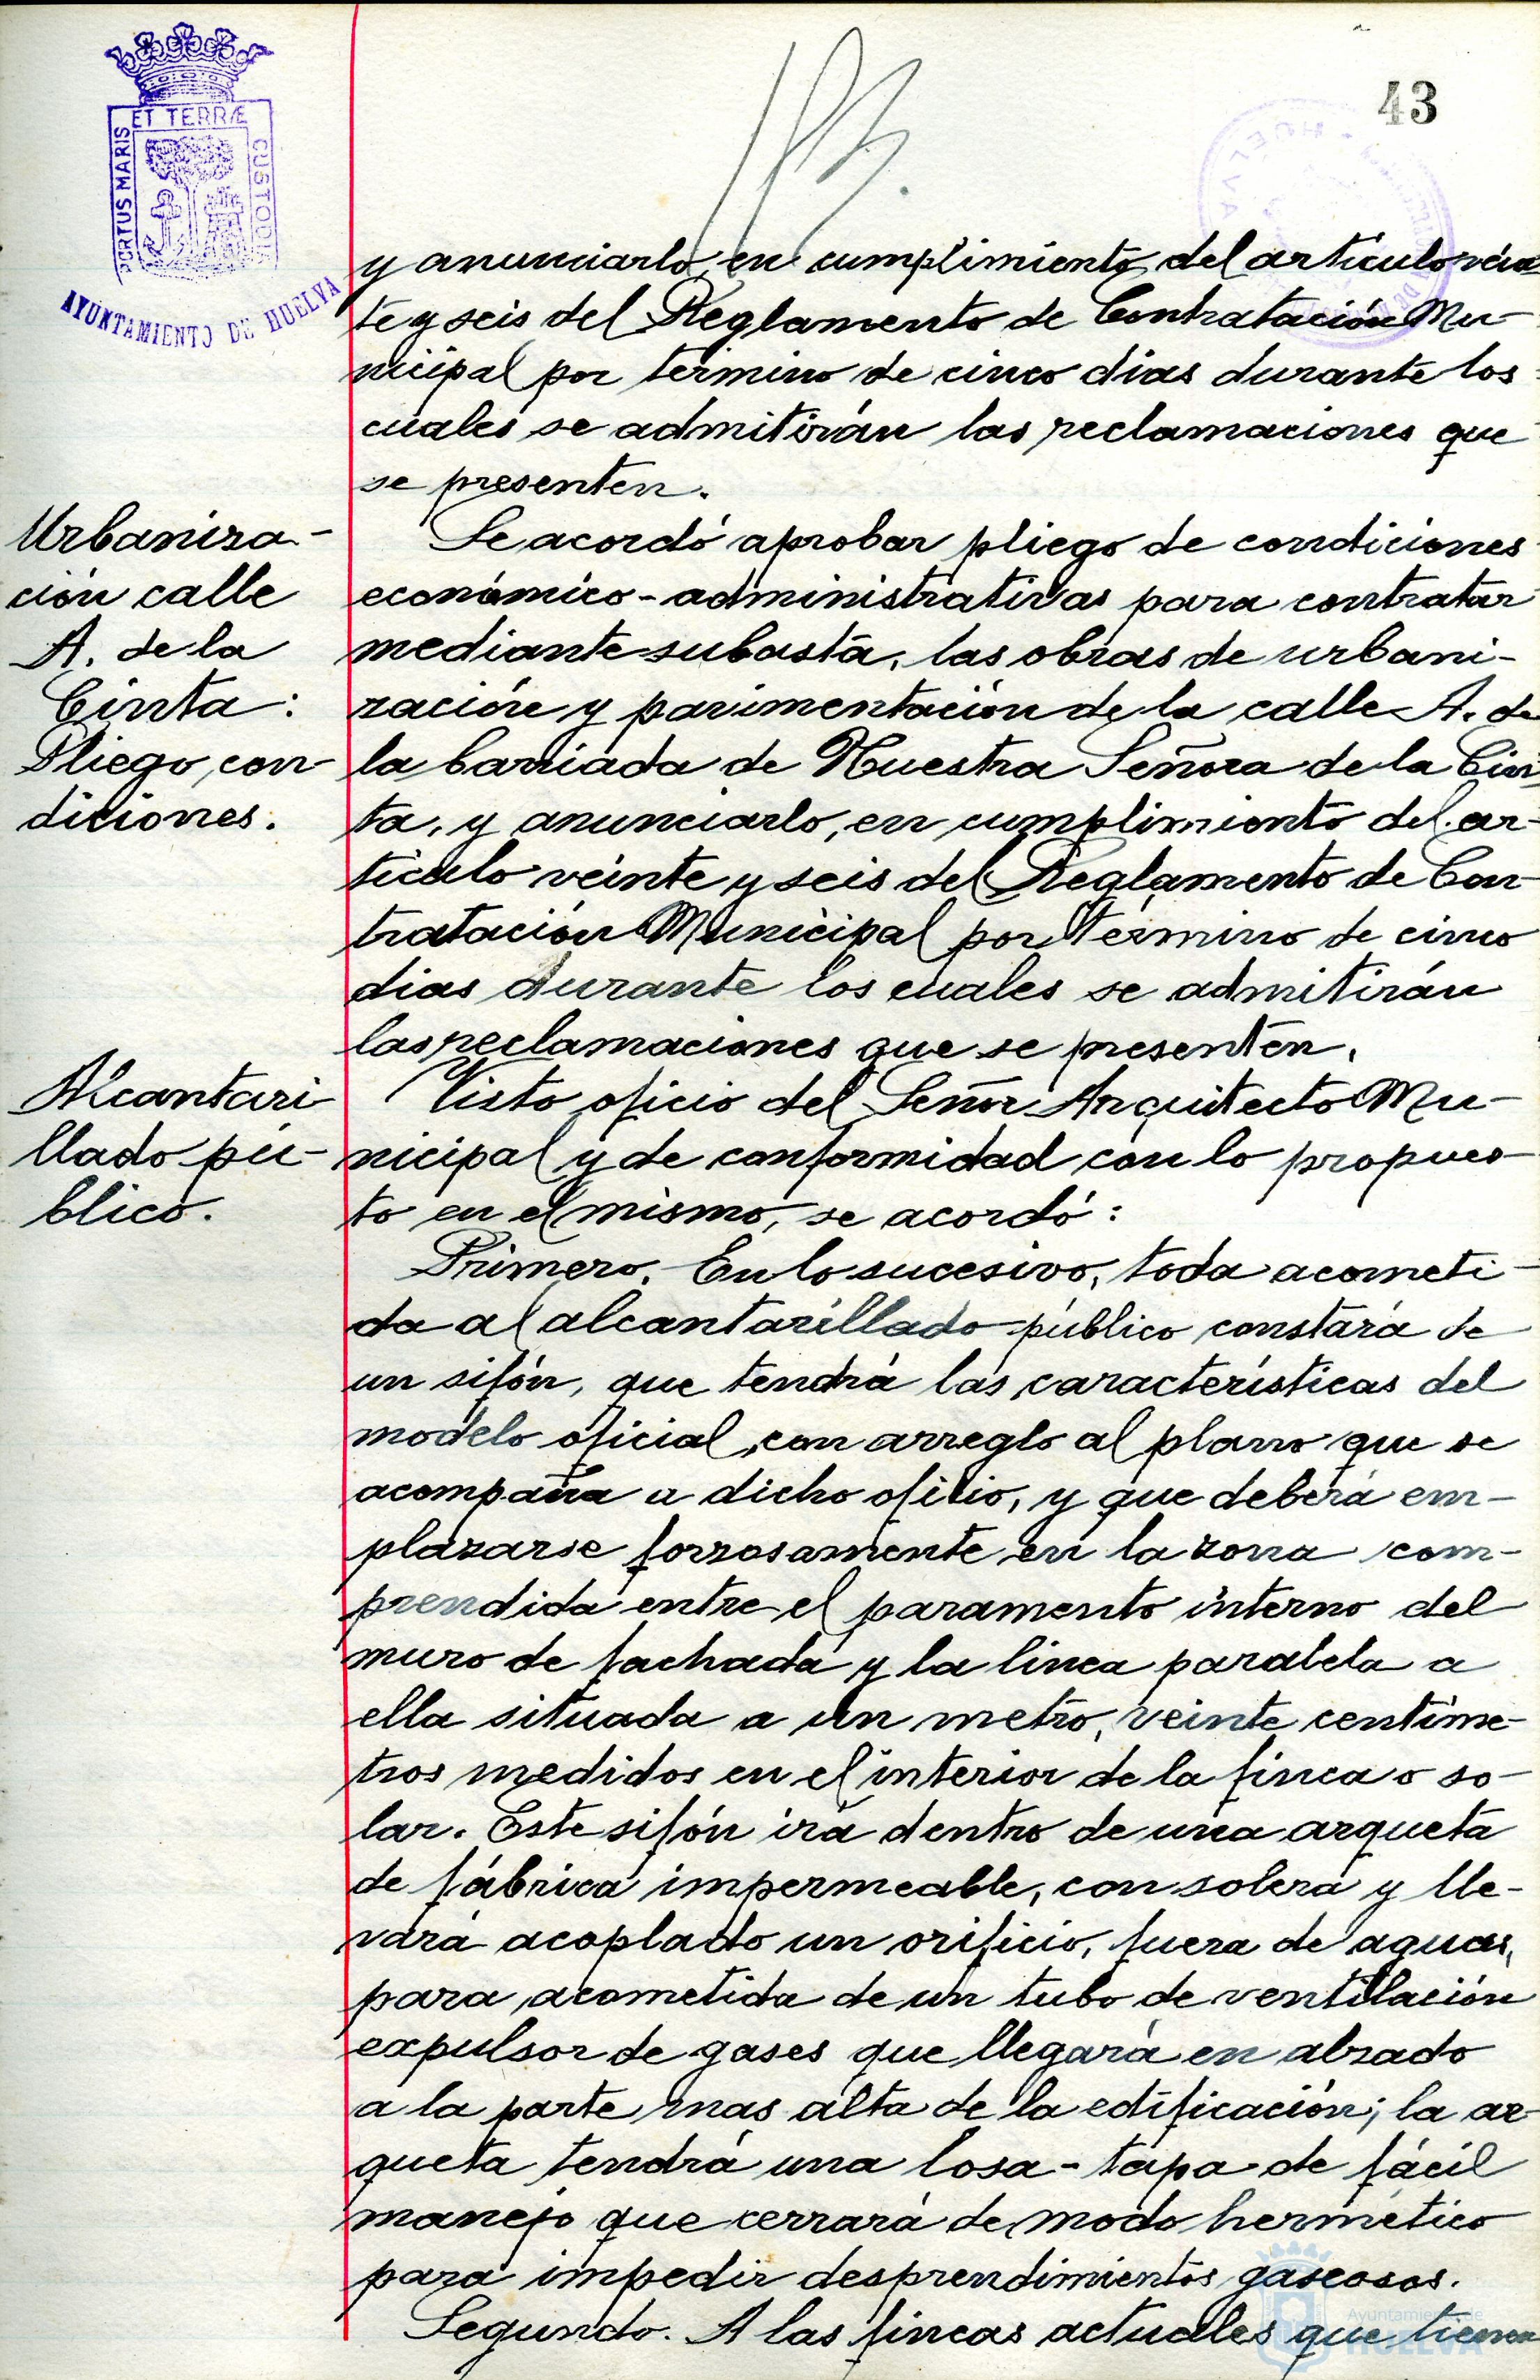 43
ET TERRÆ
PORTUS MARIS
CUSTODIA
AYUNTAMIENTO DE HUELVA
y anunciarlo, en cumplimiento del artículo vein
te y seis del Reglamento de Contratación Mu-
nicipal por término de cinco dias durante los
cuales se admitirán las reclamaciones que
se presenten.
Urbaniza-
ción calle
A. de la
Cinta:
Pliego con-
diciones.
Se acordó aprobar pliego de condiciones
económico-administrativas para contratar
mediante subasta, las obras de urbani-
zación y pavimentación de la calle A. de
la barriada de Nuestra Señora de la Cin-
ta, y anunciarlo, en cumplimiento del ar-
tículo veinte y seis del Reglamento de Con-
tratación Municipal por término de cinco
dias durante los cuales se admitirán
las reclamaciones que se presenten.
Alcantari
llado pú-
blico.
Visto oficio del Señor Arquitecto Mu-
nicipal y de conformidad con lo propues-
to en el mismo, se acordó:
Primero. En lo sucesivo, toda acometi-
da al alcantarillado público constará de
un sifón, que tendrá las características del
modelo oficial, con arreglo al plano que se
acompaña a dicho oficio, y que deberá em-
plazarse forzosamente en la zona com-
prendida entre el paramento interno del
muro de fachada y la linea paralela a
ella situada a un metro, veinte centíme-
tros medidos en el interior de la finca o so-
lar. Este sifón irá dentro de una arqueta
de fábrica impermeable, con solera y lle-
vará acoplado un orificio, fuera de aguas,
para acometida de un tubo de ventilación
expulsor de gases que llegará en alzado
a la parte mas alta de la edificación; la ar-
queta tendrá una losa-tapa de fácil
manejo que cerrará de modo hermético
para impedir desprendimientos gaseosos.
Segundo. A las fincas actuales que tienen
Ayuntamiento de
HUELVA